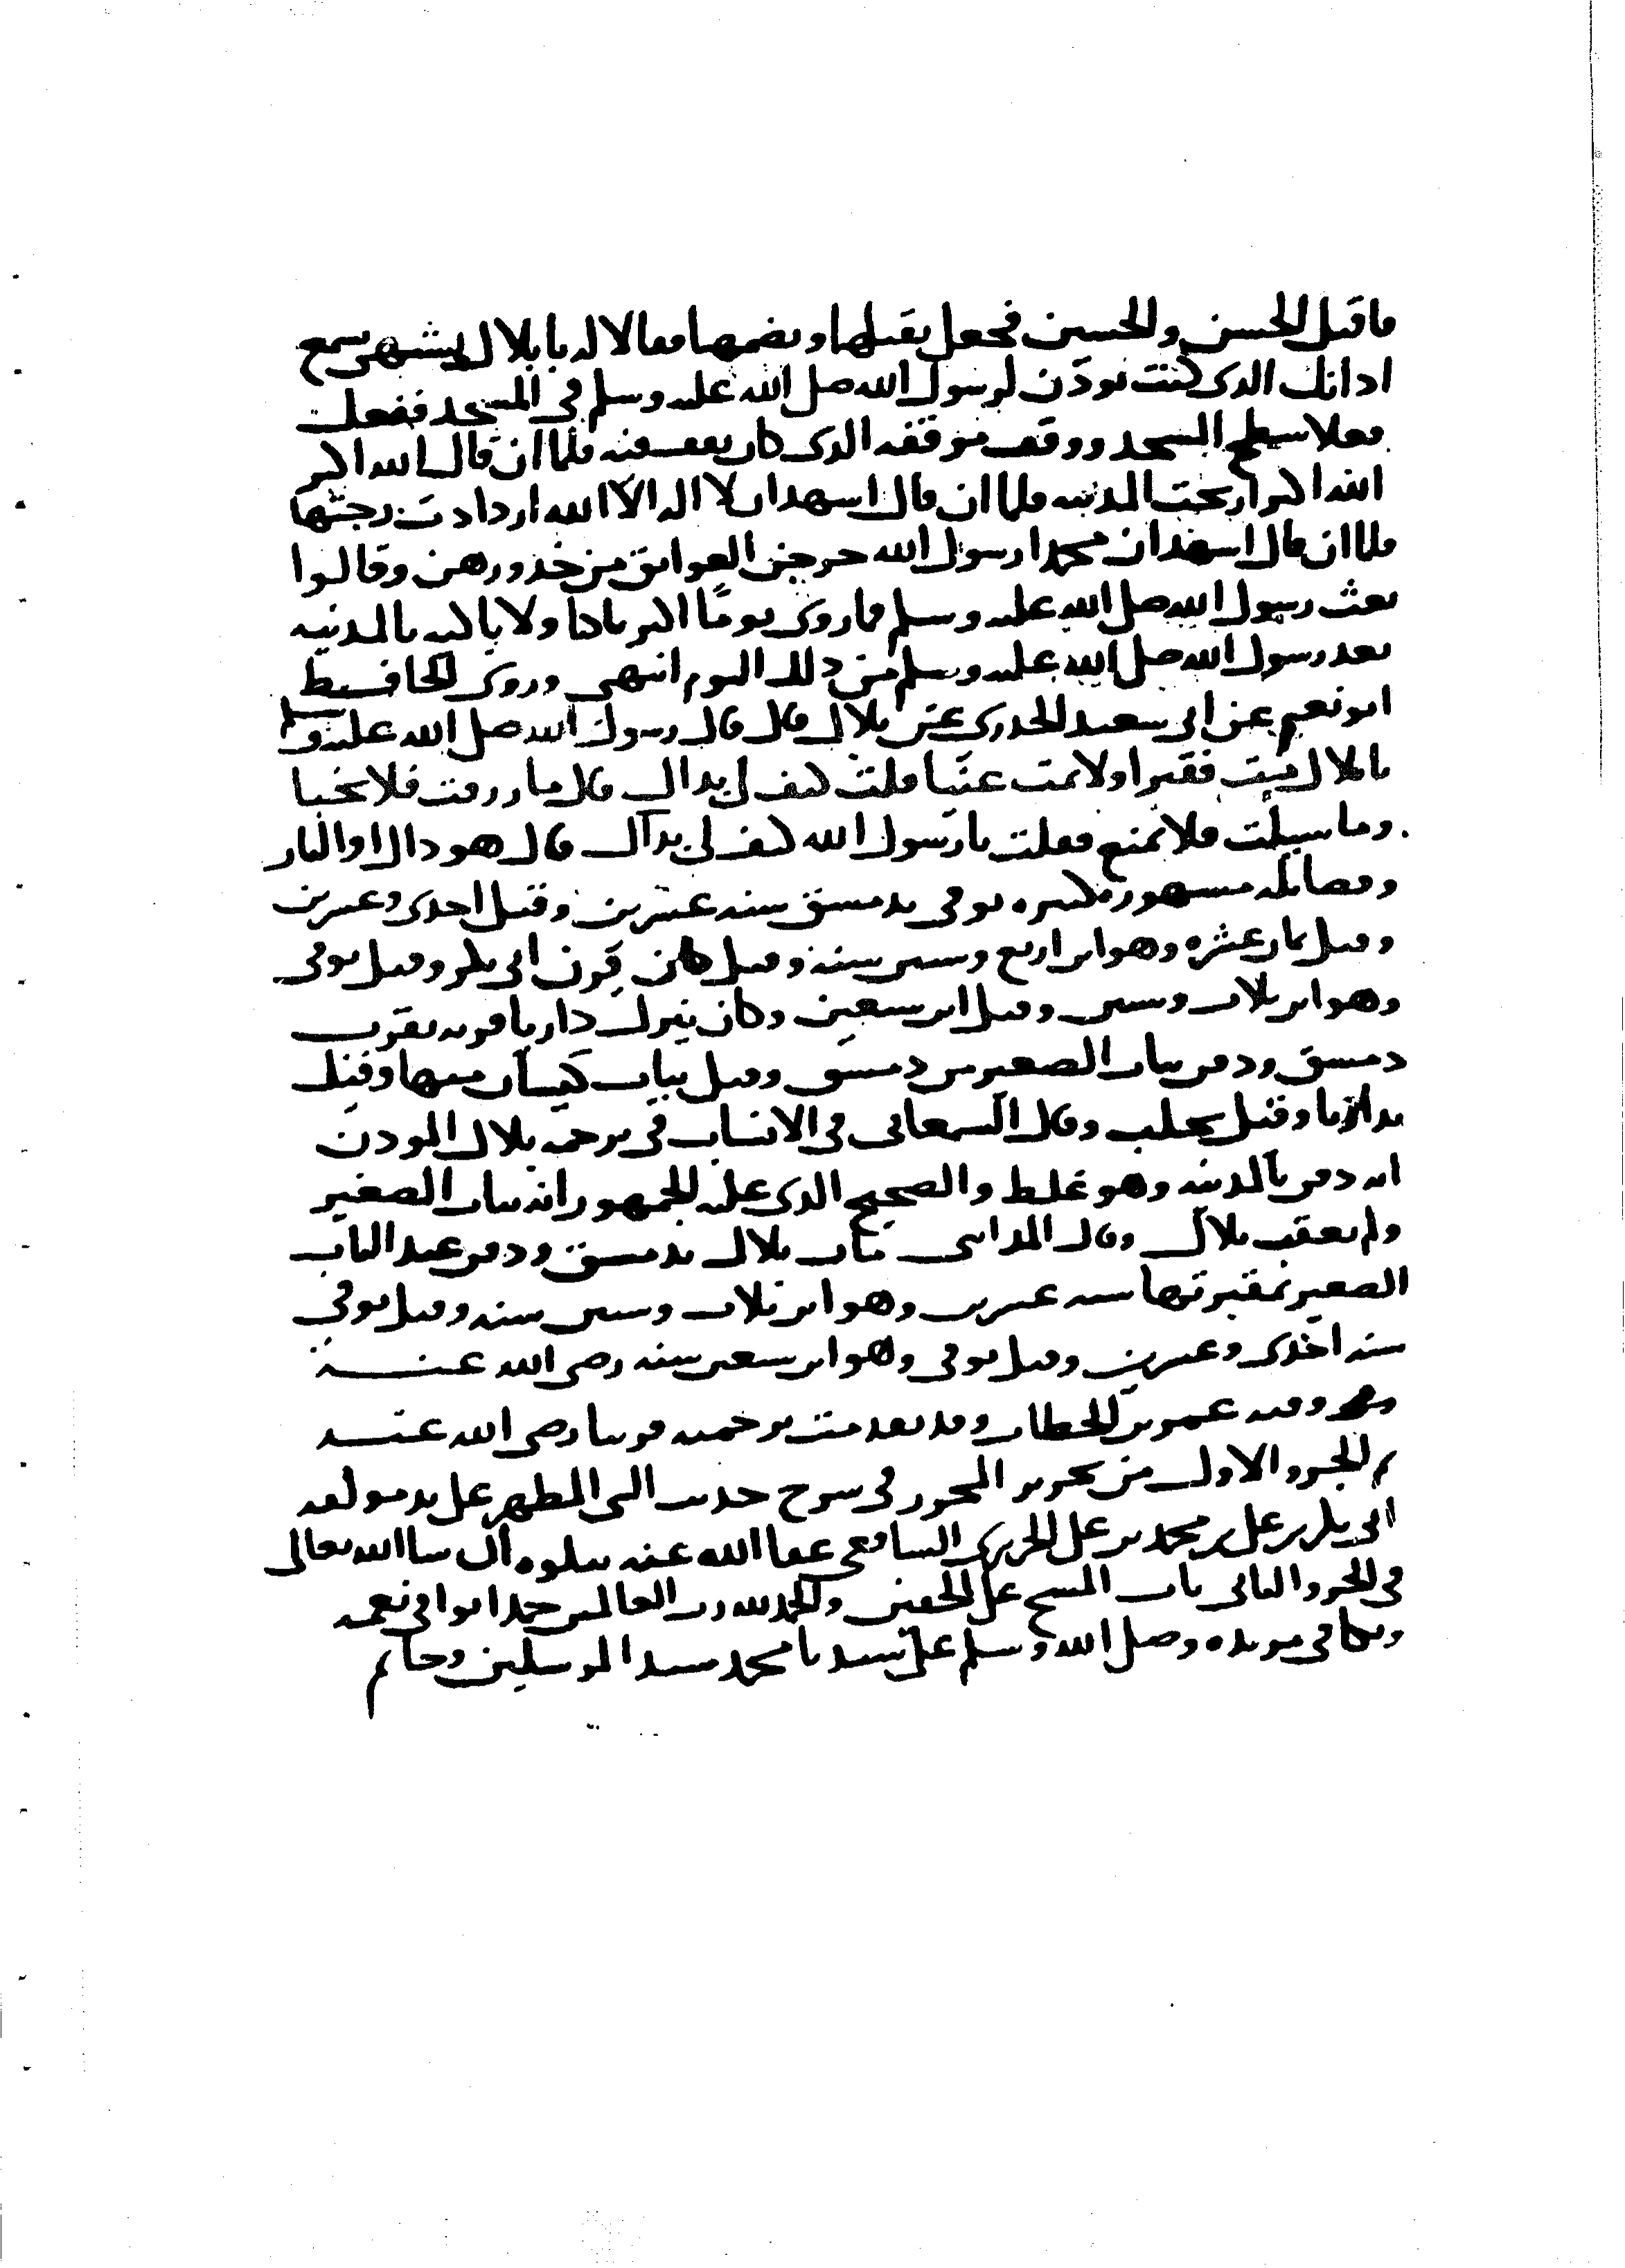 فاقبل الحسن والحسين فجعل يقبلهما ويضمهما فقالا له يا بلال نشتهي نسمع
اذانك الذي كنت توذن لرسول الله صلى الله عليه وسلم في المسجد ففعل
فعلا سطح المسجد ووقف موقفه الذي كان يقف فيه فلما ان قال الله اكبر
الله اكبر ارتجت المدينه فلما ان قال اشهد ان لا اله الا الله ازدادت رجتها
فلما ان قال اشهد ان محمدا رسول الله خرجن العواتق من خدورهن وقالوا
بعث رسول الله صلى الله عليه وسلم فما روي يوما اكثر باكيا ولا باكيه بالمدينه
بعد رسول الله صلى الله عليه وسلم من ذلك اليوم انتهى وروى الحافظ
ابو نعيم عن ابي سعيد الخدري عن بلال قال قال رسول الله صلى الله عليه وسلم
يا بلال مت فقيرا ولا تمت غنيا قلت كيف لي بذاك قال ما رزقت فلا تخبا
وما سيلت فلا تمنع فقلت يا رسول الله كيف لي بذاك قال هو ذاك او النار
وفضايله مشهوره كثيره توفي بدمشق سنه عشرين وقيل احدى وعشرين
وقيل ثمان عشره وهو ابن اربع وستين سنه وقيل كان قرن ابي بكر وقيل توفي
وهو ابن ثلاث وستين وقيل ابن سبعين وكان ينزل داريا قريه بقرب
دمشق ودفن بباب الصغير من دمشق وقيل بباب كيسان منها وقيل
بداريا وقيل بحلب وقال السمعاني في الانساب في ترجمه بلال الموذن
انه دفن بالمدينه وهو غلط والصحيح الذي عليه الجمهور انه بباب الصغير
ولم يعقب بلال وقال المدايني مات بلال بدمشق ودفن عند الباب
الصغير بمقبرتها سنه عشرين وهو ابن ثلاث وستين سنه وقيل توفي
سنه احدى وعشرين وقيل توفي وهو ابن سبعين سنه رضي الله عنه
وفيه عمر بن الخطاب وقد تقدمت ترجمته قريبا رضي الله عنه
تم الجزو الاول من تحرير المحرر في شرح حديث النبي المطهر على يد مولفه
ابي بكر بن علي بن محمد بن علي الحريري الشافعي عفا الله عنه يتلوه ان شا الله تعالى
في الجزو الثاني باب المسح على الخفين والحمد لله رب العالمين حمدا يوافي نعمه
ويكافي مزيده وصلى الله وسلم على سيدنا محمد سيد المرسلين وخاتم